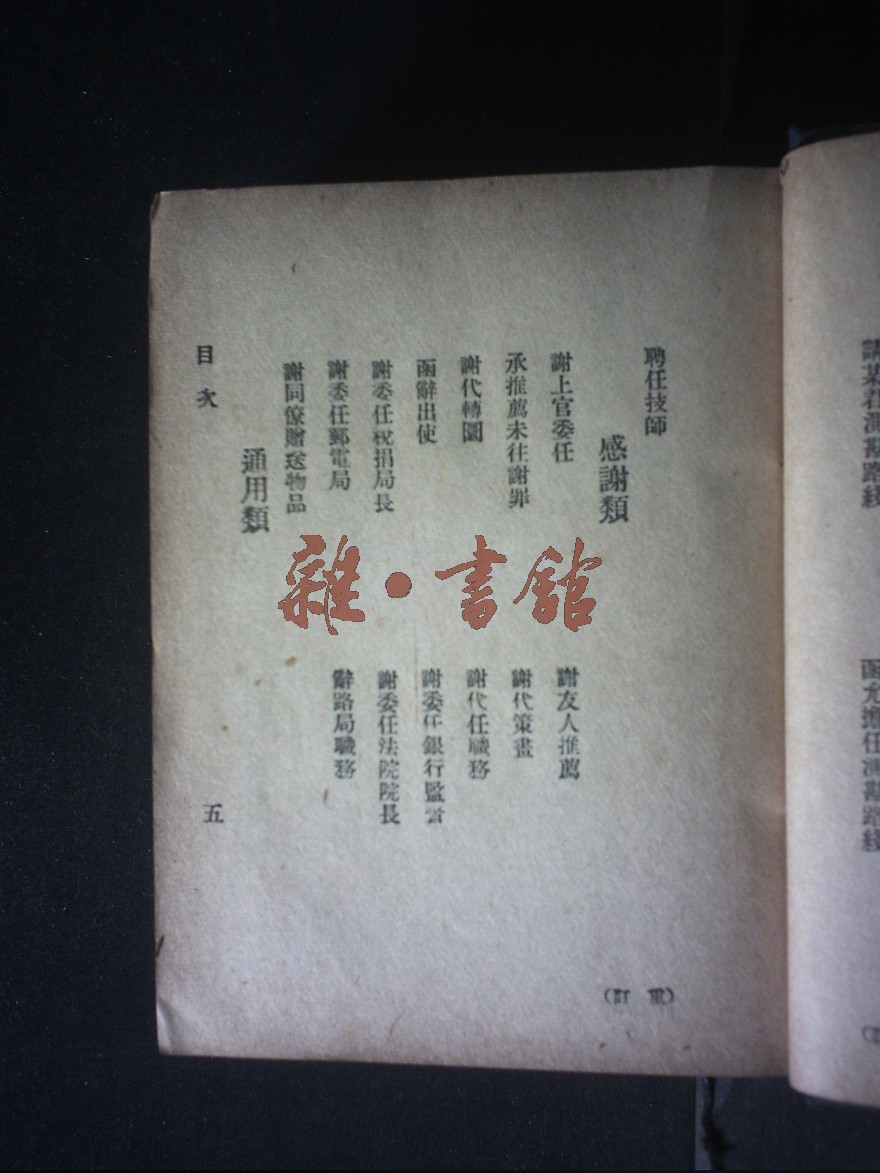 聘任技師
感謝類
謝上官委任
謝友人推薦
承推薦未往謝罪
謝代策畫
謝代轉圜
謝代任職務
函辭出使
謝委任銀行監
謝委任稅捐局長
謝委任法院院長
謝委任郵電局
辭路局職務
謝同僚贈送物品
通用類
目次
五
雜·書館